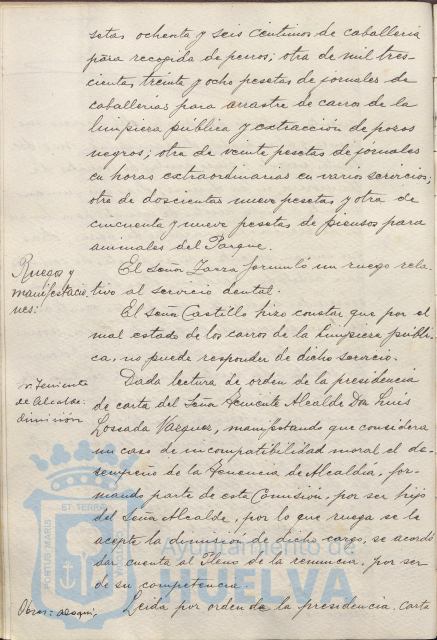 setas ochenta y seis centimos de caballeria
para recogida de perros; otra de mil tres-
cientas treinta y ocho pesetas de jornales de
caballerias para arrastre de carros de la
limpieza pública y extracción de pozos
negros; otra de veinte pesetas de jornales
en horas extraordinarias en varios servicios;
otra de doscientas nueve pesetas y otra de
cincuenta y nueve pesetas de piensos para
animales del Parque.
Ruegos y
manifestacio
nes:
El señor Zarra formuló un ruego rela
tivo al servicio dental.
El Señor Castillo hizo constar que por el
mal estado de los carros de la limpieza públi-
ca, no puede responder de dicho servicio.
Teniente
de Alcalde:
dimisión
Dada lectura de orden de la presidencia
de carta del Señor Teniente Alcalde Don Luis
Lossada Vazquez, manifestando que considera
un caso de incompatibilidad moral el de-
sempeño de la Tenencia de Alcaldía, for-
mando parte de esta Comisión, por ser hijo
del Señor Alcalde, por lo que ruega se le
acepte la dimisión de dicho cargo, se acordó
dar cuenta al Pleno de la renuncia, por ser
de su competencia.
Obras:
Leida por orden de la presidencia, carta
ET TERRA
PORTUS MARIS
Ayuntamiento de
HUELVA